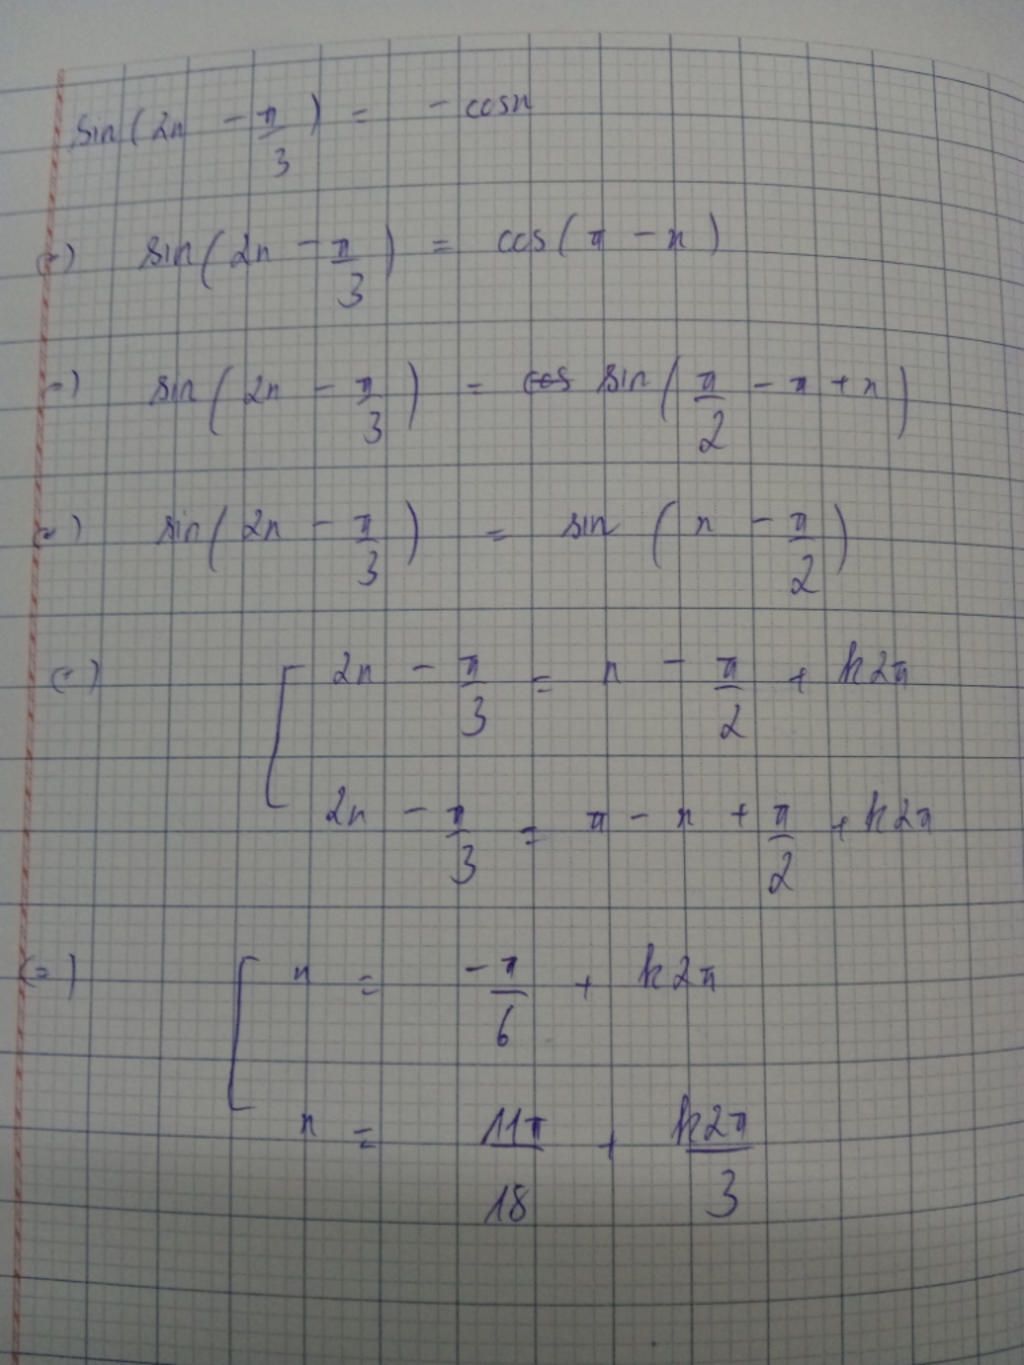 sin(2x - π/3) = - cosx
(=) sin(2x - π/3) = cos(π - x)
(=) sin(2x - π/3) = cos sin(π/2 - π + x)
(=) sin(2x - π/3) = sin (x - π/2)
(=) [ 2x - π/3 = x - π/2 + k2π
2x - π/3 = π - x + π/2 + k2π
(=) [ x = -π/6 + k2π
x = 11π/18 + k2π/3